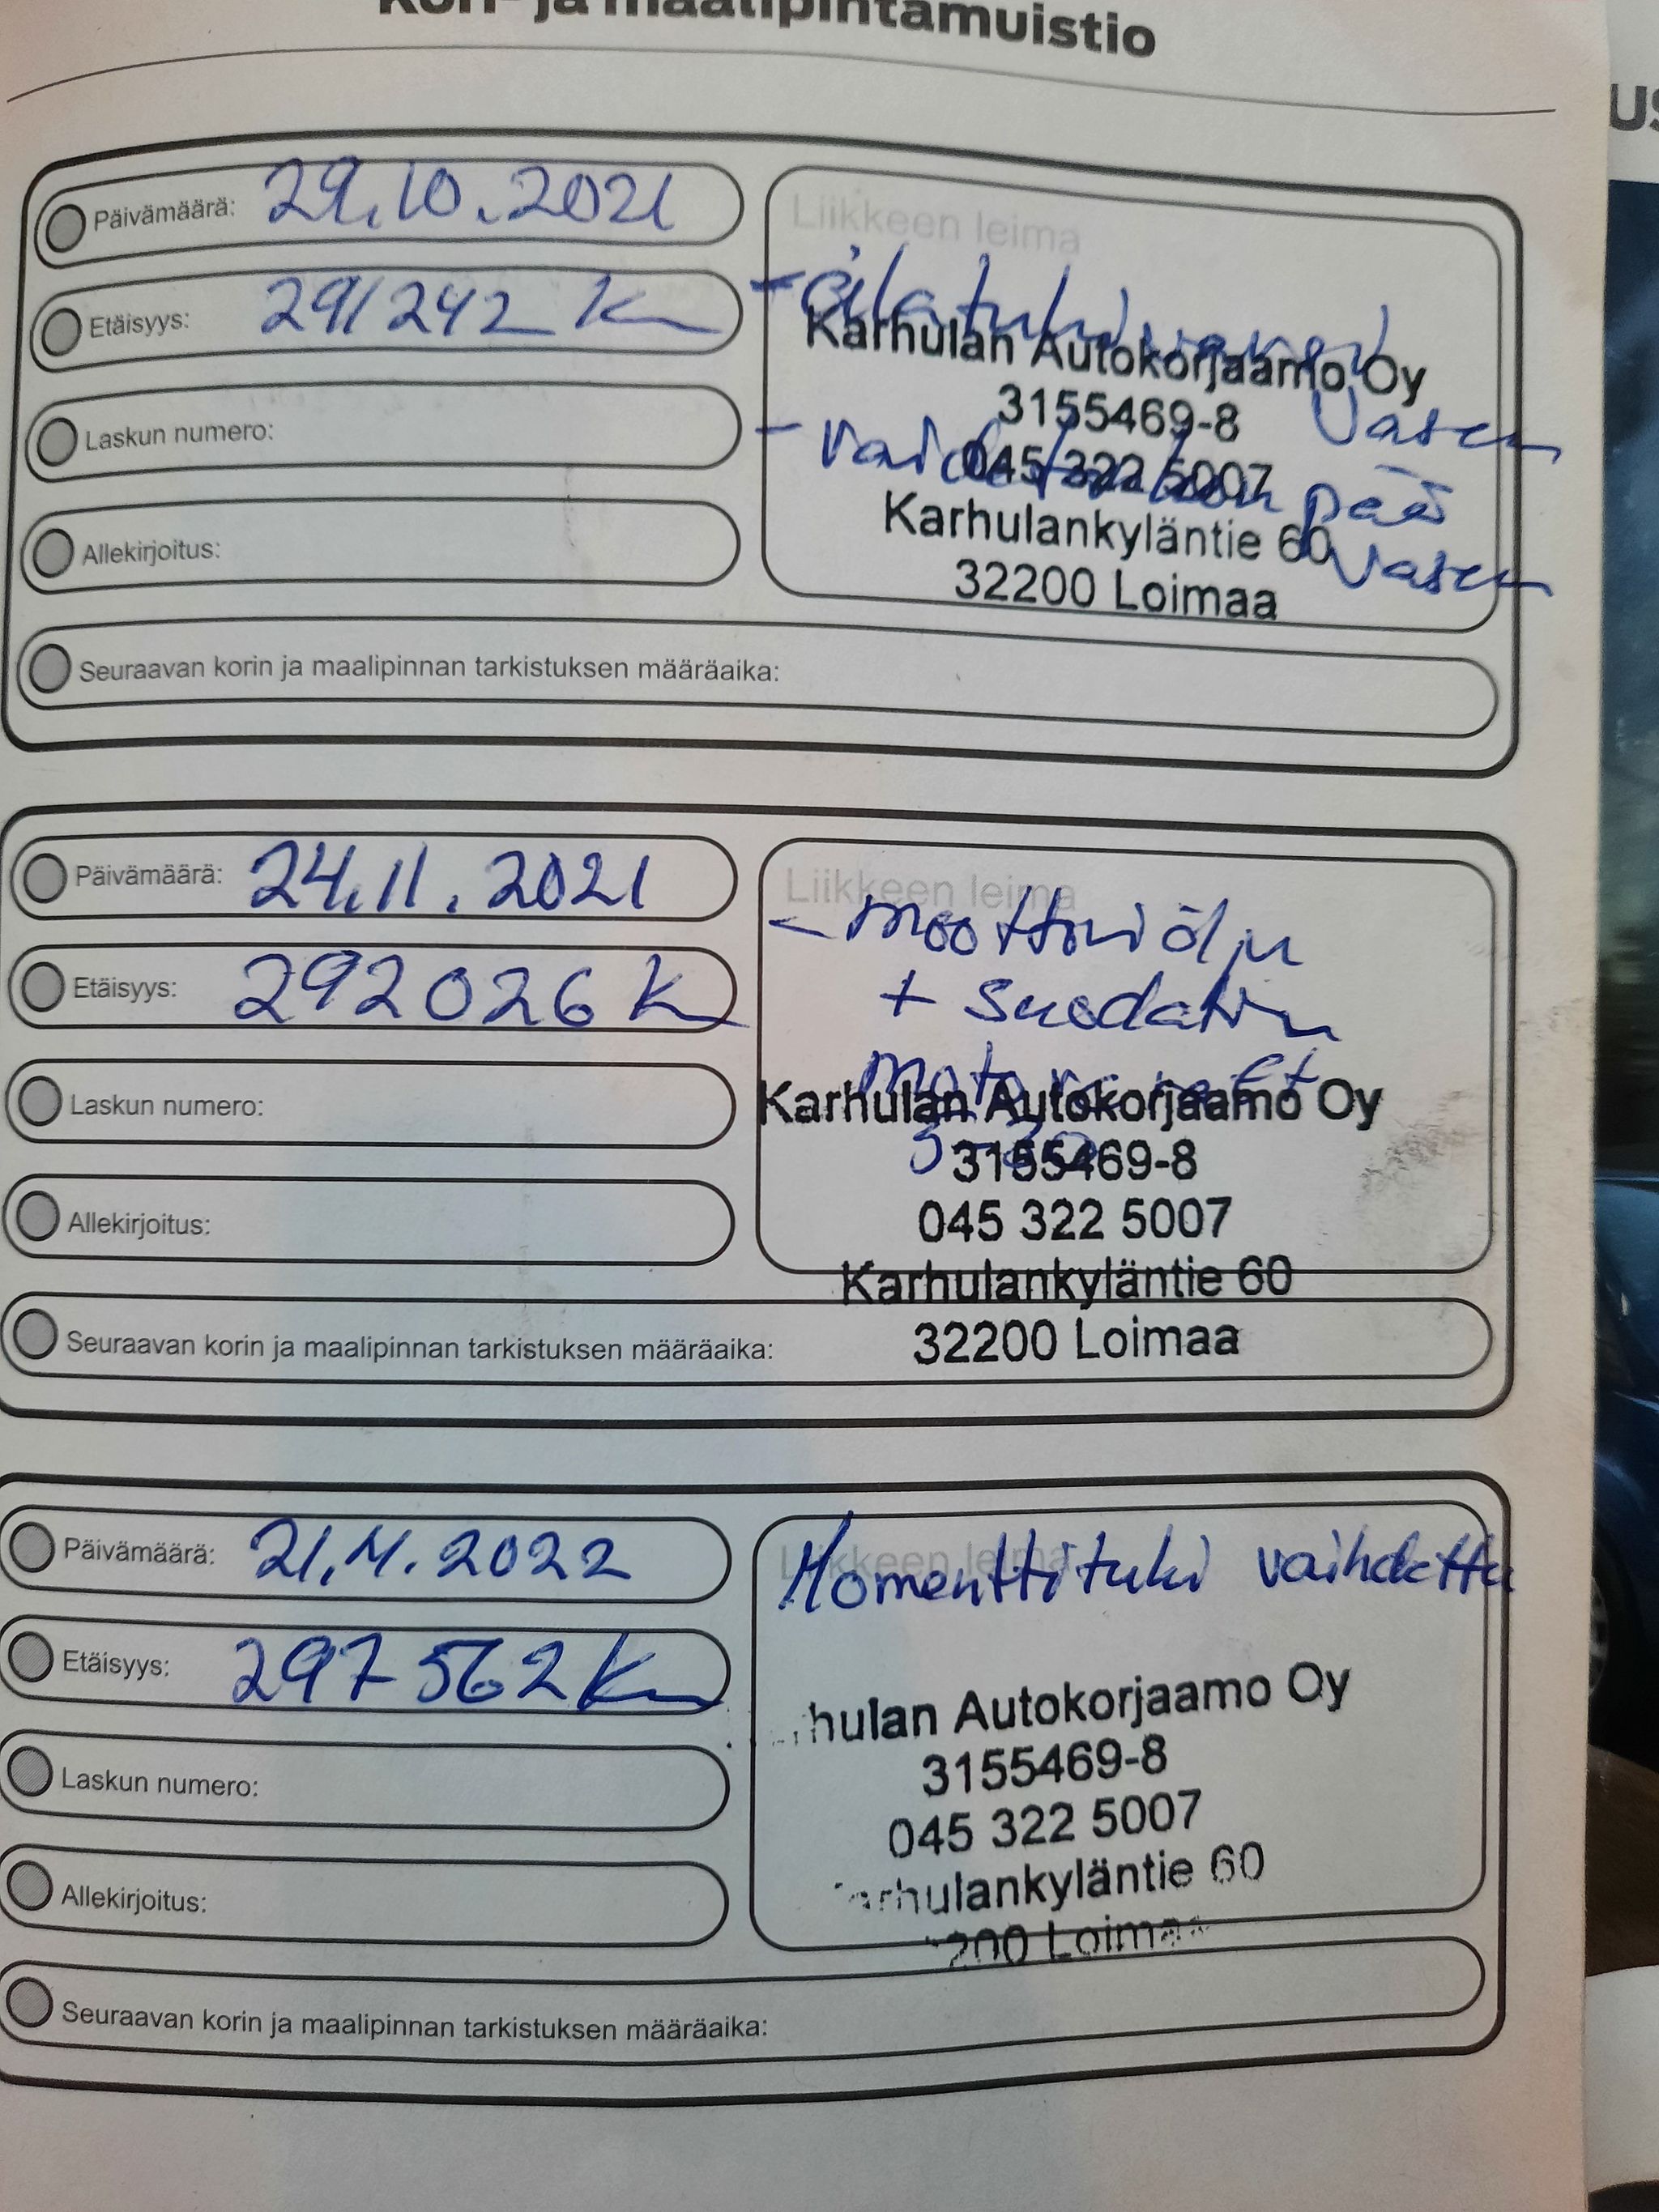 Kori- ja maalipintamuistio
US
Päivämäärä: 29.10.2021
Etäisyys: 291242 km
Laskun numero:
Allekirjoitus:
Liikkeen leima
Karhulan Autokorjaamo Oy
vasen
3155469-8
045 322 5007
pää
Karhulankyläntie 60
vasen
32200 Loimaa
Seuraavan korin ja maalipinnan tarkistuksen määräaika:
Päivämäärä: 24.11.2021
Etäisyys: 292026 km
Laskun numero:
Allekirjoitus:
Liikkeen leima
- moottoriöljy
+ suodatin
Karhulan Autokorjaamo Oy
3155469-8
045 322 5007
Karhulankyläntie 60
32200 Loimaa
Seuraavan korin ja maalipinnan tarkistuksen määräaika:
Päivämäärä:
Etäisyys: 297562 km
Laskun numero:
Allekirjoitus:
Liikkeen leima
Momenttituki vaihdettu
hulan Autokorjaamo Oy
3155469-8
045 322 5007
arhulankyläntie 60
200 Loimaa
Seuraavan korin ja maalipinnan tarkistuksen määräaika: